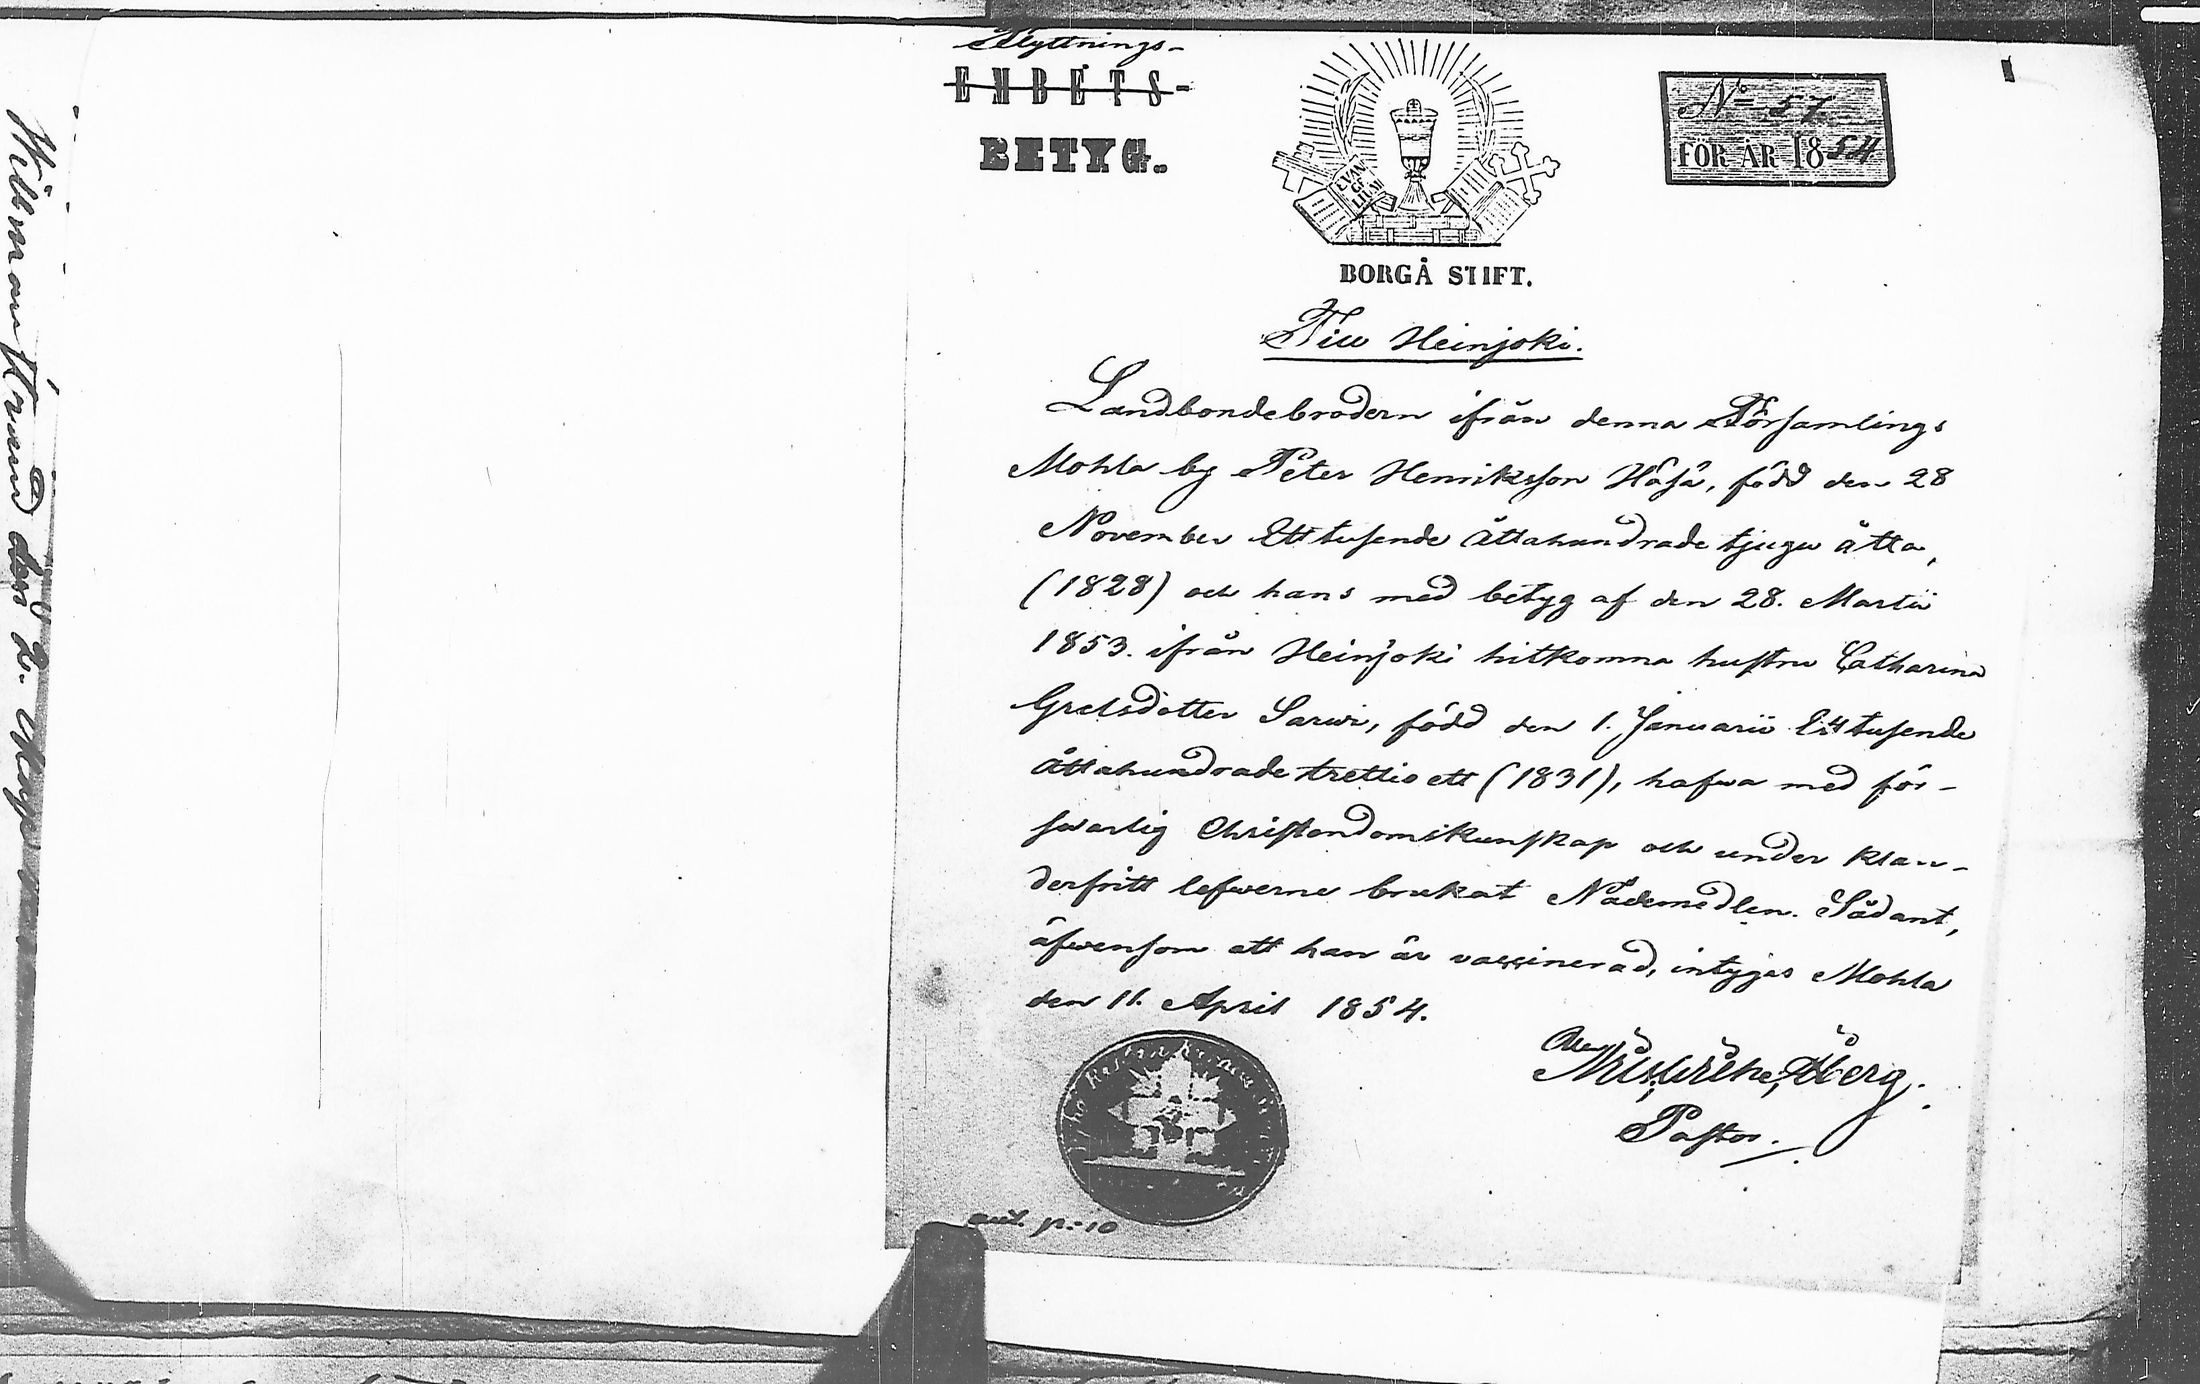 Willmanstrand den 2. 
Flyttnings-
EMBETS-
BETYG.
EVAN
GE
LIUM
BORGÅ STIFT.
No 57
FÖR ÅR 1854
Till Heinjoki.
Landbondebrodern ifrån denna Församlings
Mohla by Peter Henriksson Häsä, född den 28
November Ett tusende Åttahundrade tjugu åtta,
(1828) och hans med betyg af den 28. Martii
1853. ifrån Heinjoki hitkomna hustru Catharina
Grelsdotter Sarwi, född den 1. Januarii Ett tusende
Åttahundrade trettio ett (1831), hafwa med för-
swarlig Christendomskunskap och under klan-
derfritt lefwerne brukat Nådemedlen. Sådant,
äfwensom att han är vaccinerad, intygas Mohla
den 11. April 1854.
Pastor.
p. 10